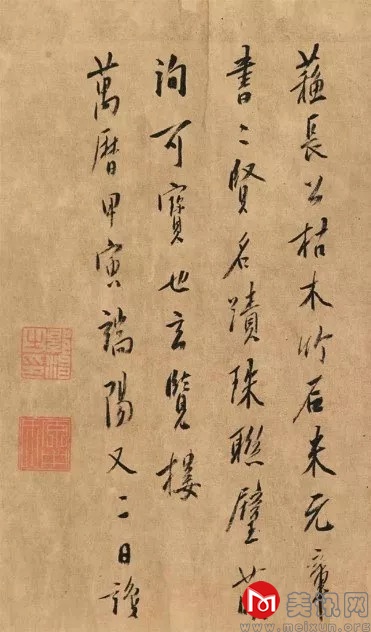 蘇長公枯木竹石米元章
書二賢名蹟珠聯璧
洵可寶也玄覽樓
萬曆甲寅端陽又二日
美讯网
www.meixun.org